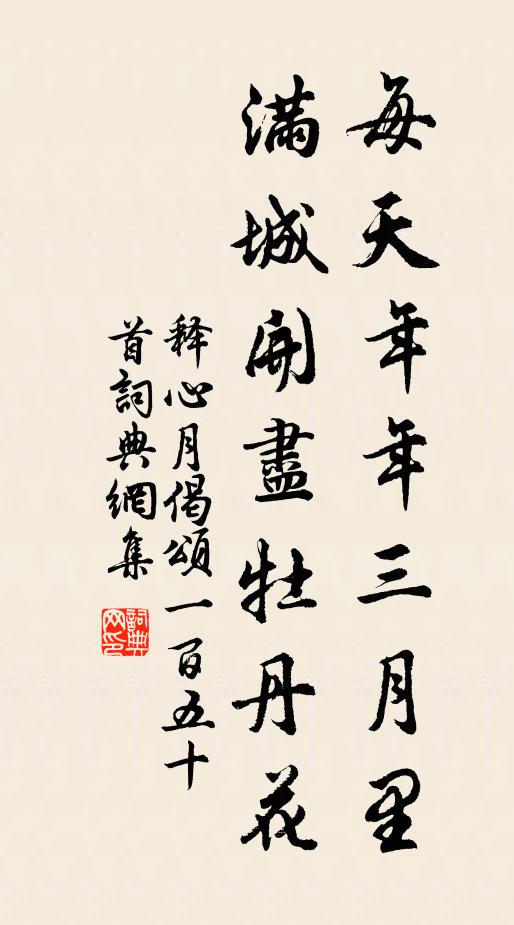 每天年年三月里
滿城開盡牡丹花
释心月偈頌一百五十
首詞典網集
詞典网印